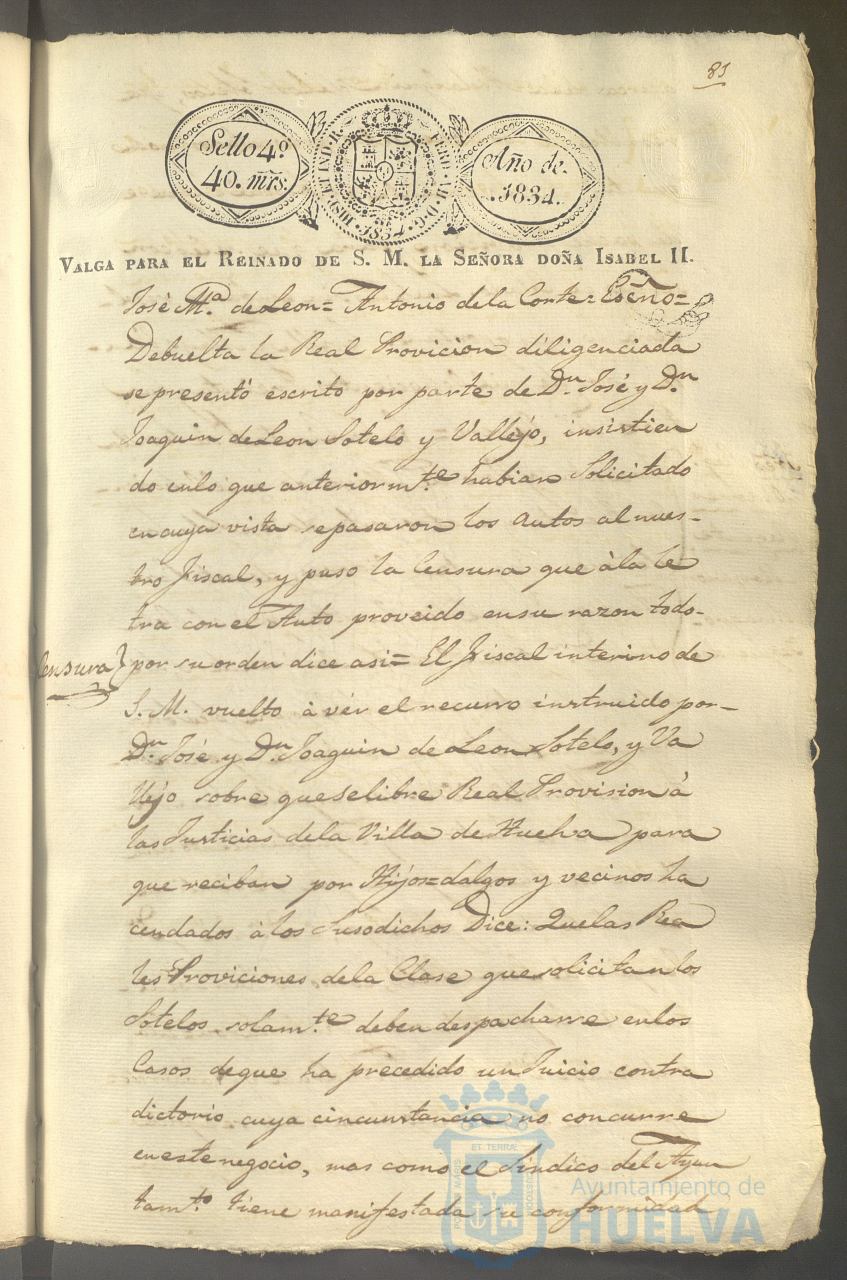 81
Sello 4º
40. mrs.
HISP. ET IND. R. FERD. VII. D. G. 1834
Año de
1834.
VALGA PARA EL REINADO DE S. M. LA SEÑORA DOÑA ISABEL II.
José Mª. de Leon= Antonio de la Corte= Esno=
Debuelta la Real Provicion diligenciada
se presentó escrito por parte de Dn. José y Dn.
Joaquin de Leon Sotelo y Vallejo, insistien
do en lo que anteriormte. habian Solicitado
en cuya vista se pasaron los autos al nues-
tro Fiscal, y puso la Censura que à la le
tra con el Auto proveido en su razon todo-
Censura} por su orden dice asi= El Fiscal interino de
S. M. vuelto à vér el recurso instruido por-
Dn. José y Dn. Joaquin de Leon Sotelo, y Va
llejo sobre que se libre Real Provision á
las Justicias de la Villa de Huelva para
que reciban por Hijos=dalgos y vecinos ha
cendados à los Susodichos Dice: Que las Rea
les Proviciones de la Clase que solicitan los
Sotelos solamte. deben despacharse en los
Casos de que ha precedido un Juicio contra
dictorio cuya circunstancia no concurre
en este negocio, mas como el Sindico del Ayun
tamto. tiene manifestada su conformidad
PORTUS MARIS ET TERRÆ CUSTODIA
Ayuntamiento de
HUELVA